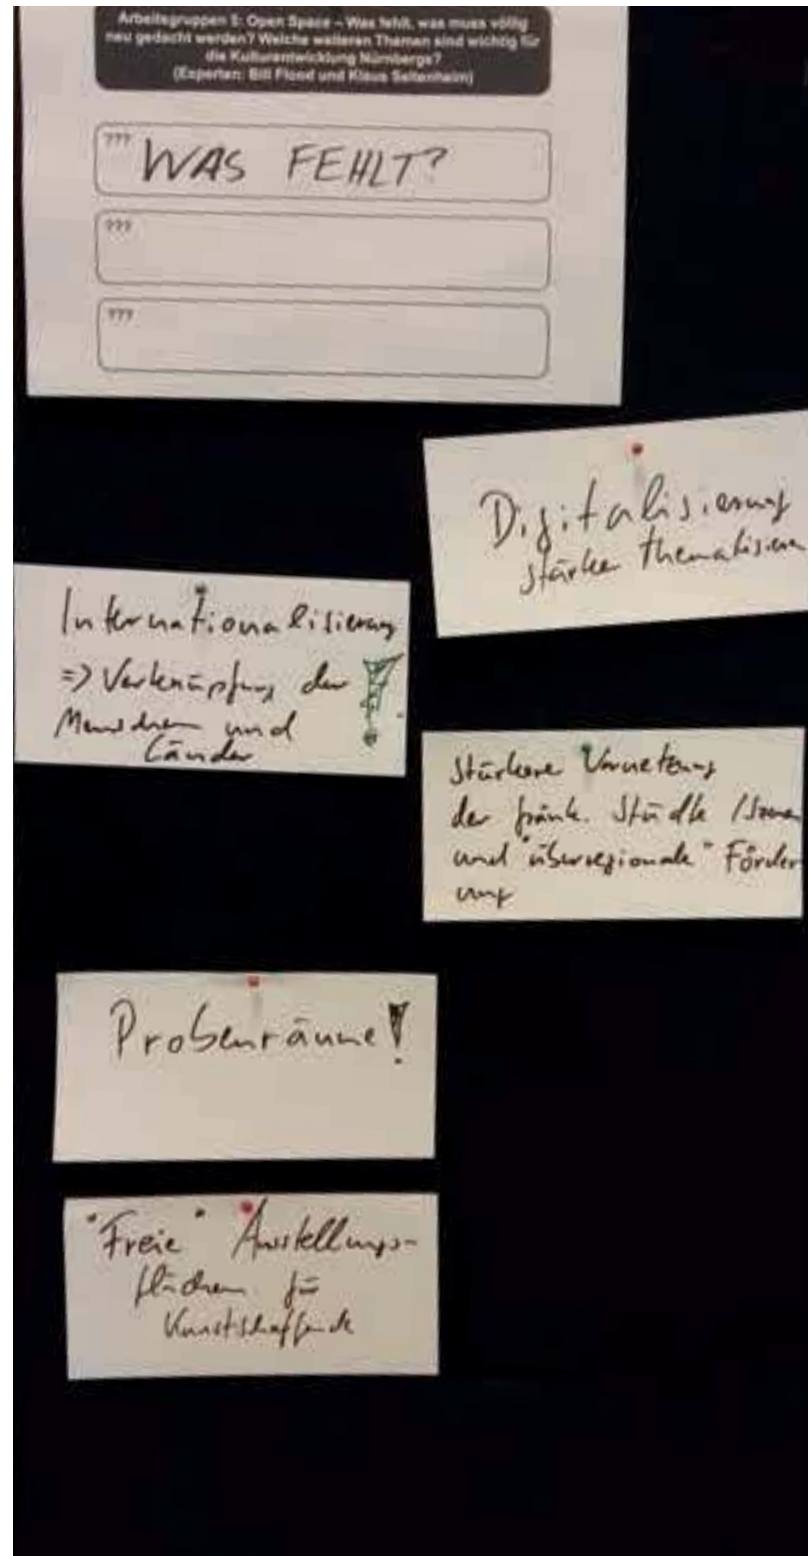 Arbeitsgruppen 5: Open Space – Was fehlt, was muss völlig
neu gedacht werden? Welche weiteren Themen sind wichtig für
die Kulturentwicklung Nürnbergs?
(Experten: Bill Flood und Klaus Seltenheim)
???
WAS FEHLT?
???
???
Digitalisierung
stärker thematisieren
Internationalisierung
=> Verknüpfung der
Menschen und
Länder
Stärkere Vernetzung
der fränk. Städte /
und "überregionale" Förder
ung
Probenräume!
"Freie" Ausstellungs-
flächen für
Kunstschaffende